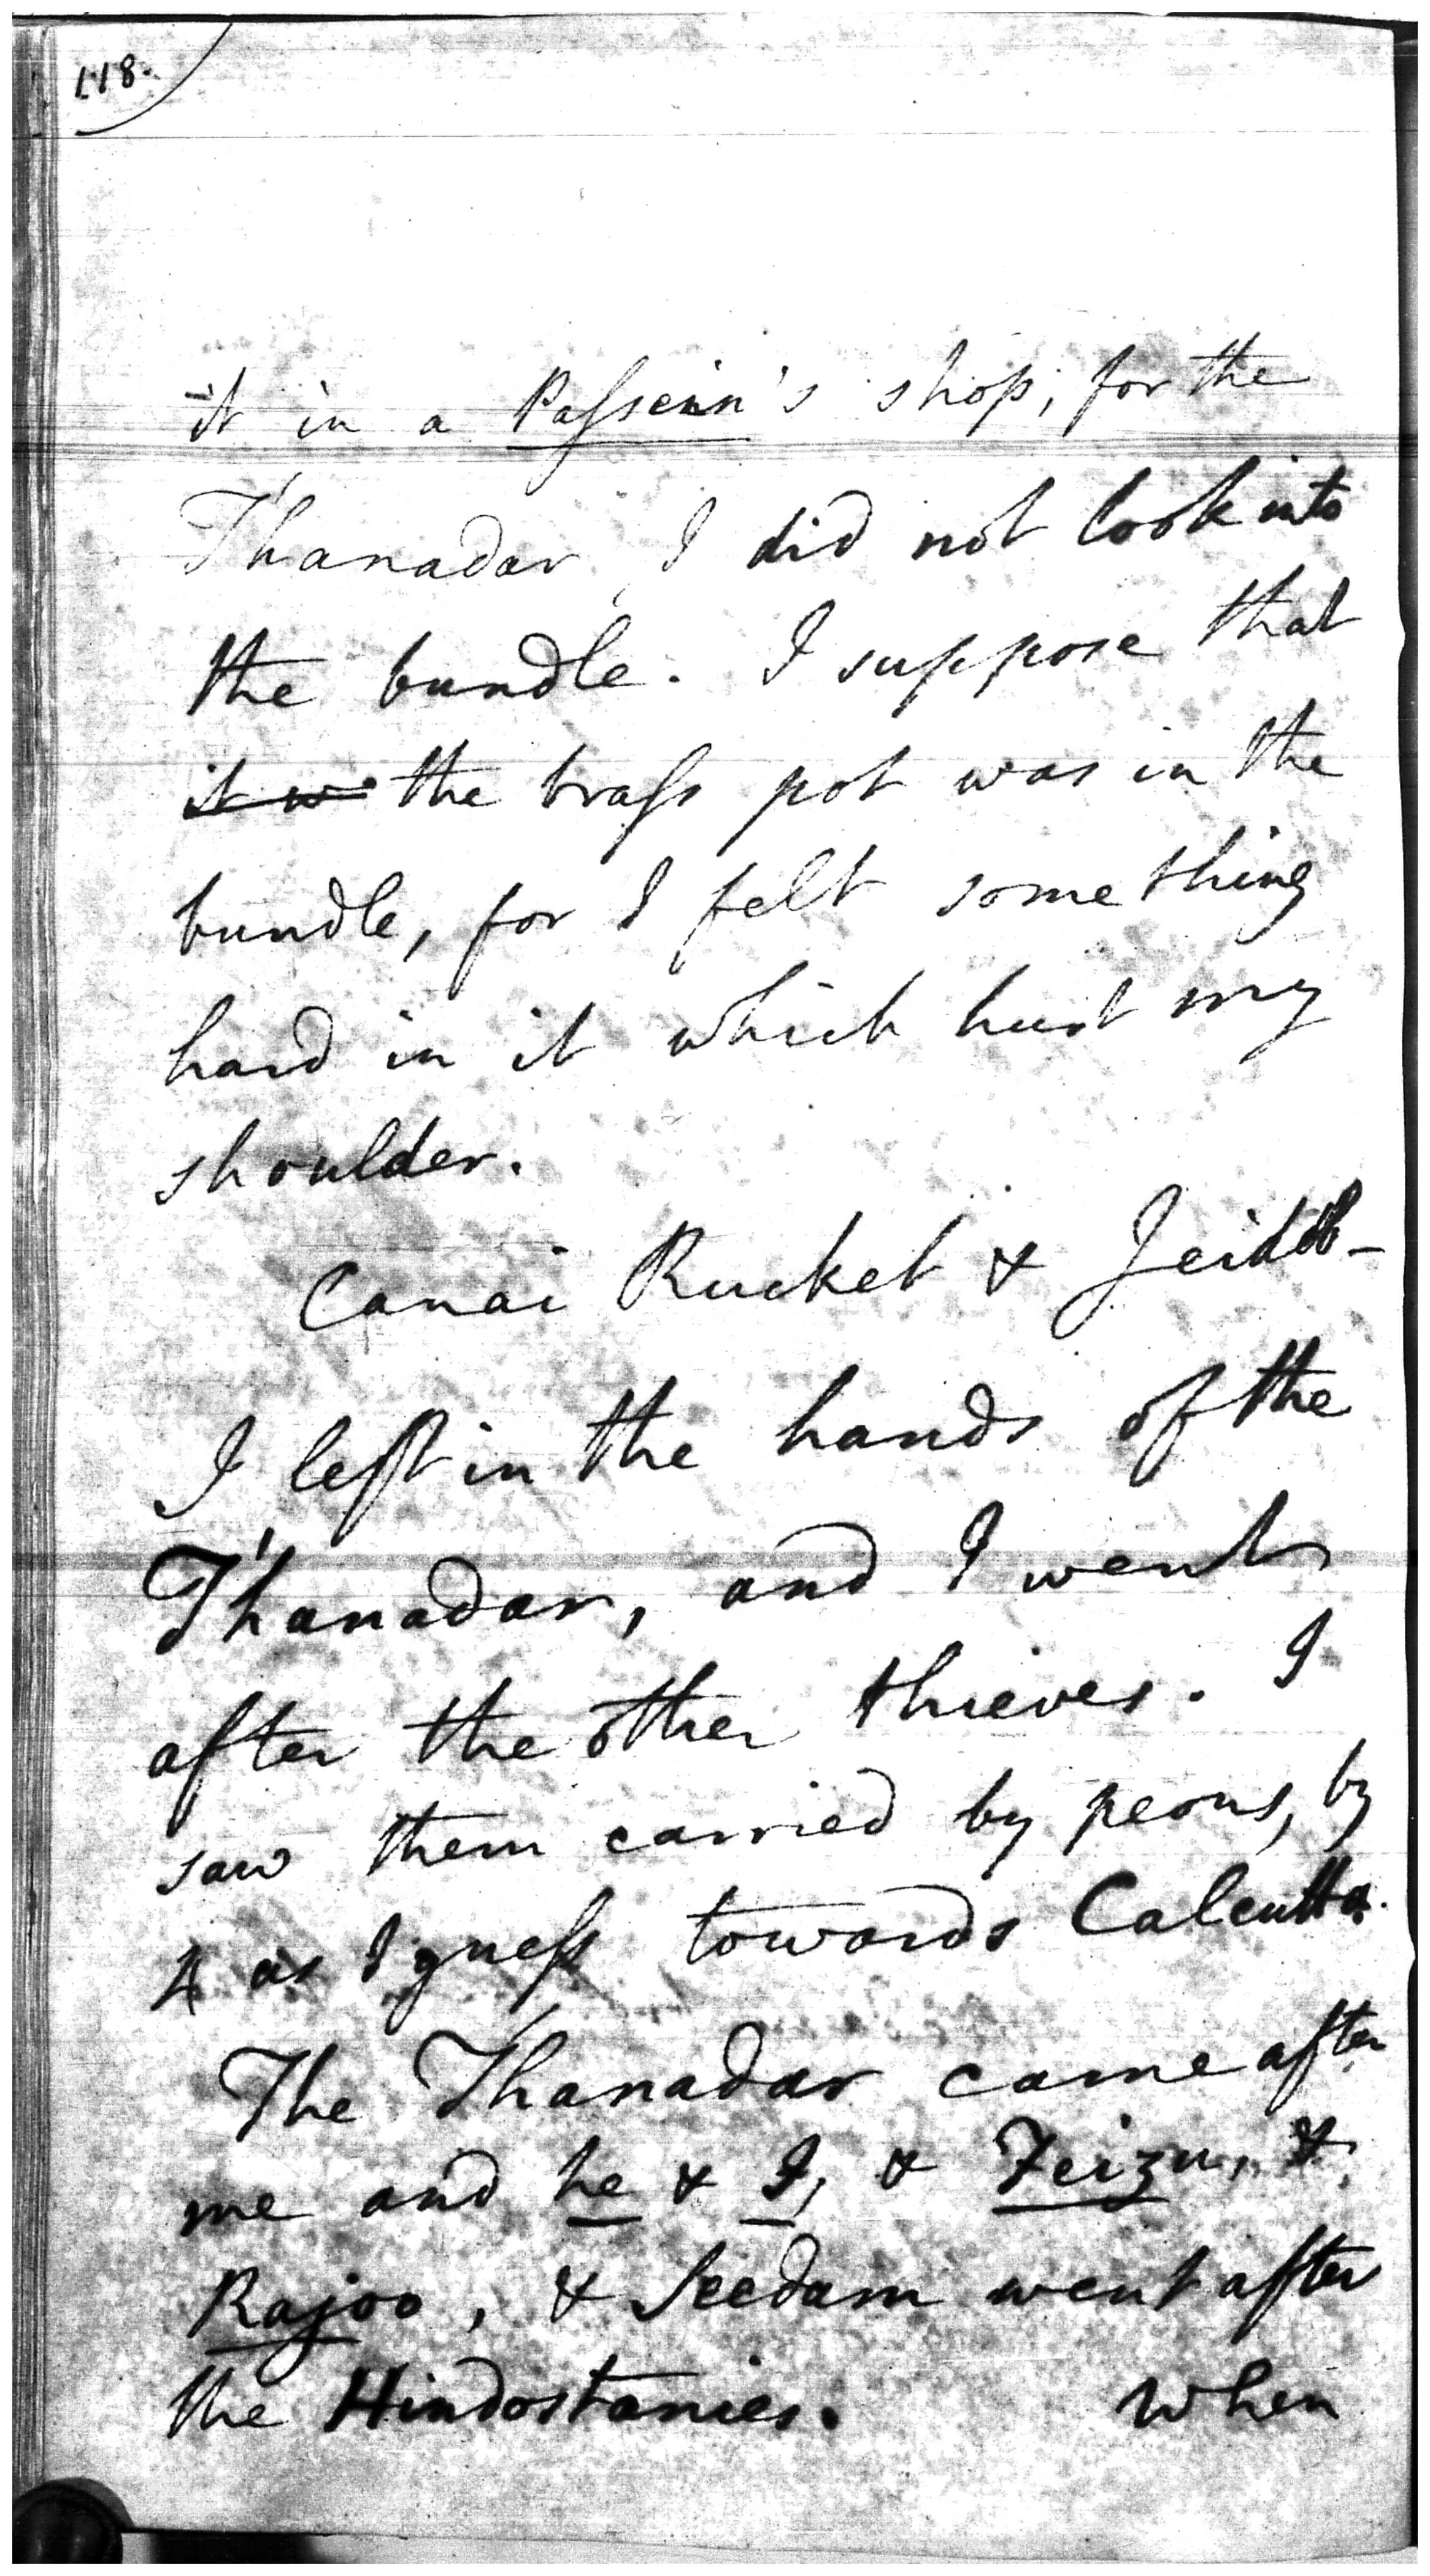 118.
it in a Passein's shop, for the
Thanadar, I did not look into
the bundle. I suppose that
it w the brass pot was in the
bundle, for I felt something
hard in it which hurt my
shoulder.
Canai Rucket &
I left in the hands of the
Thanadar, and I went
after the other thieves. I
saw them carried by peons, by
as I guess towards Calcutta.
The Thanadar came after
me and he & I, & Feizu, &
Rajoo, & Seedam went after
the Hindostanies. When